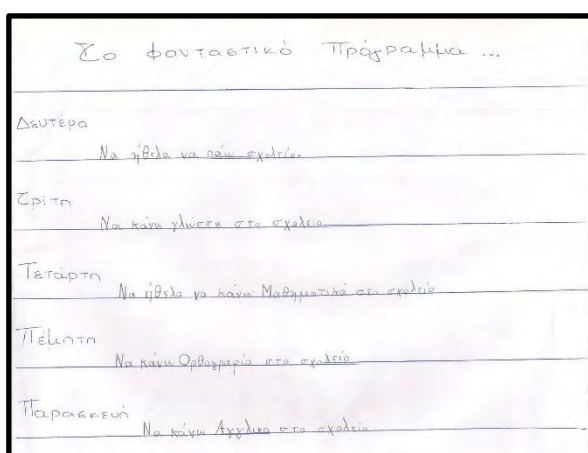 Το φανταστικό Πρόγραμμα ...
Δευτέρα
Να ήθελα να πάω σχολείο.
Τρίτη
Να κάνω γλώσσα στο σχολείο
Τετάρτη
Να ήθελα να κάνω Μαθηματικά στο σχολείο
Πέμπτη
Να κάνω Ορθογραφία στο σχολείο
Παρασκευή
Να κάνω Αγγλικα στο σχολείο